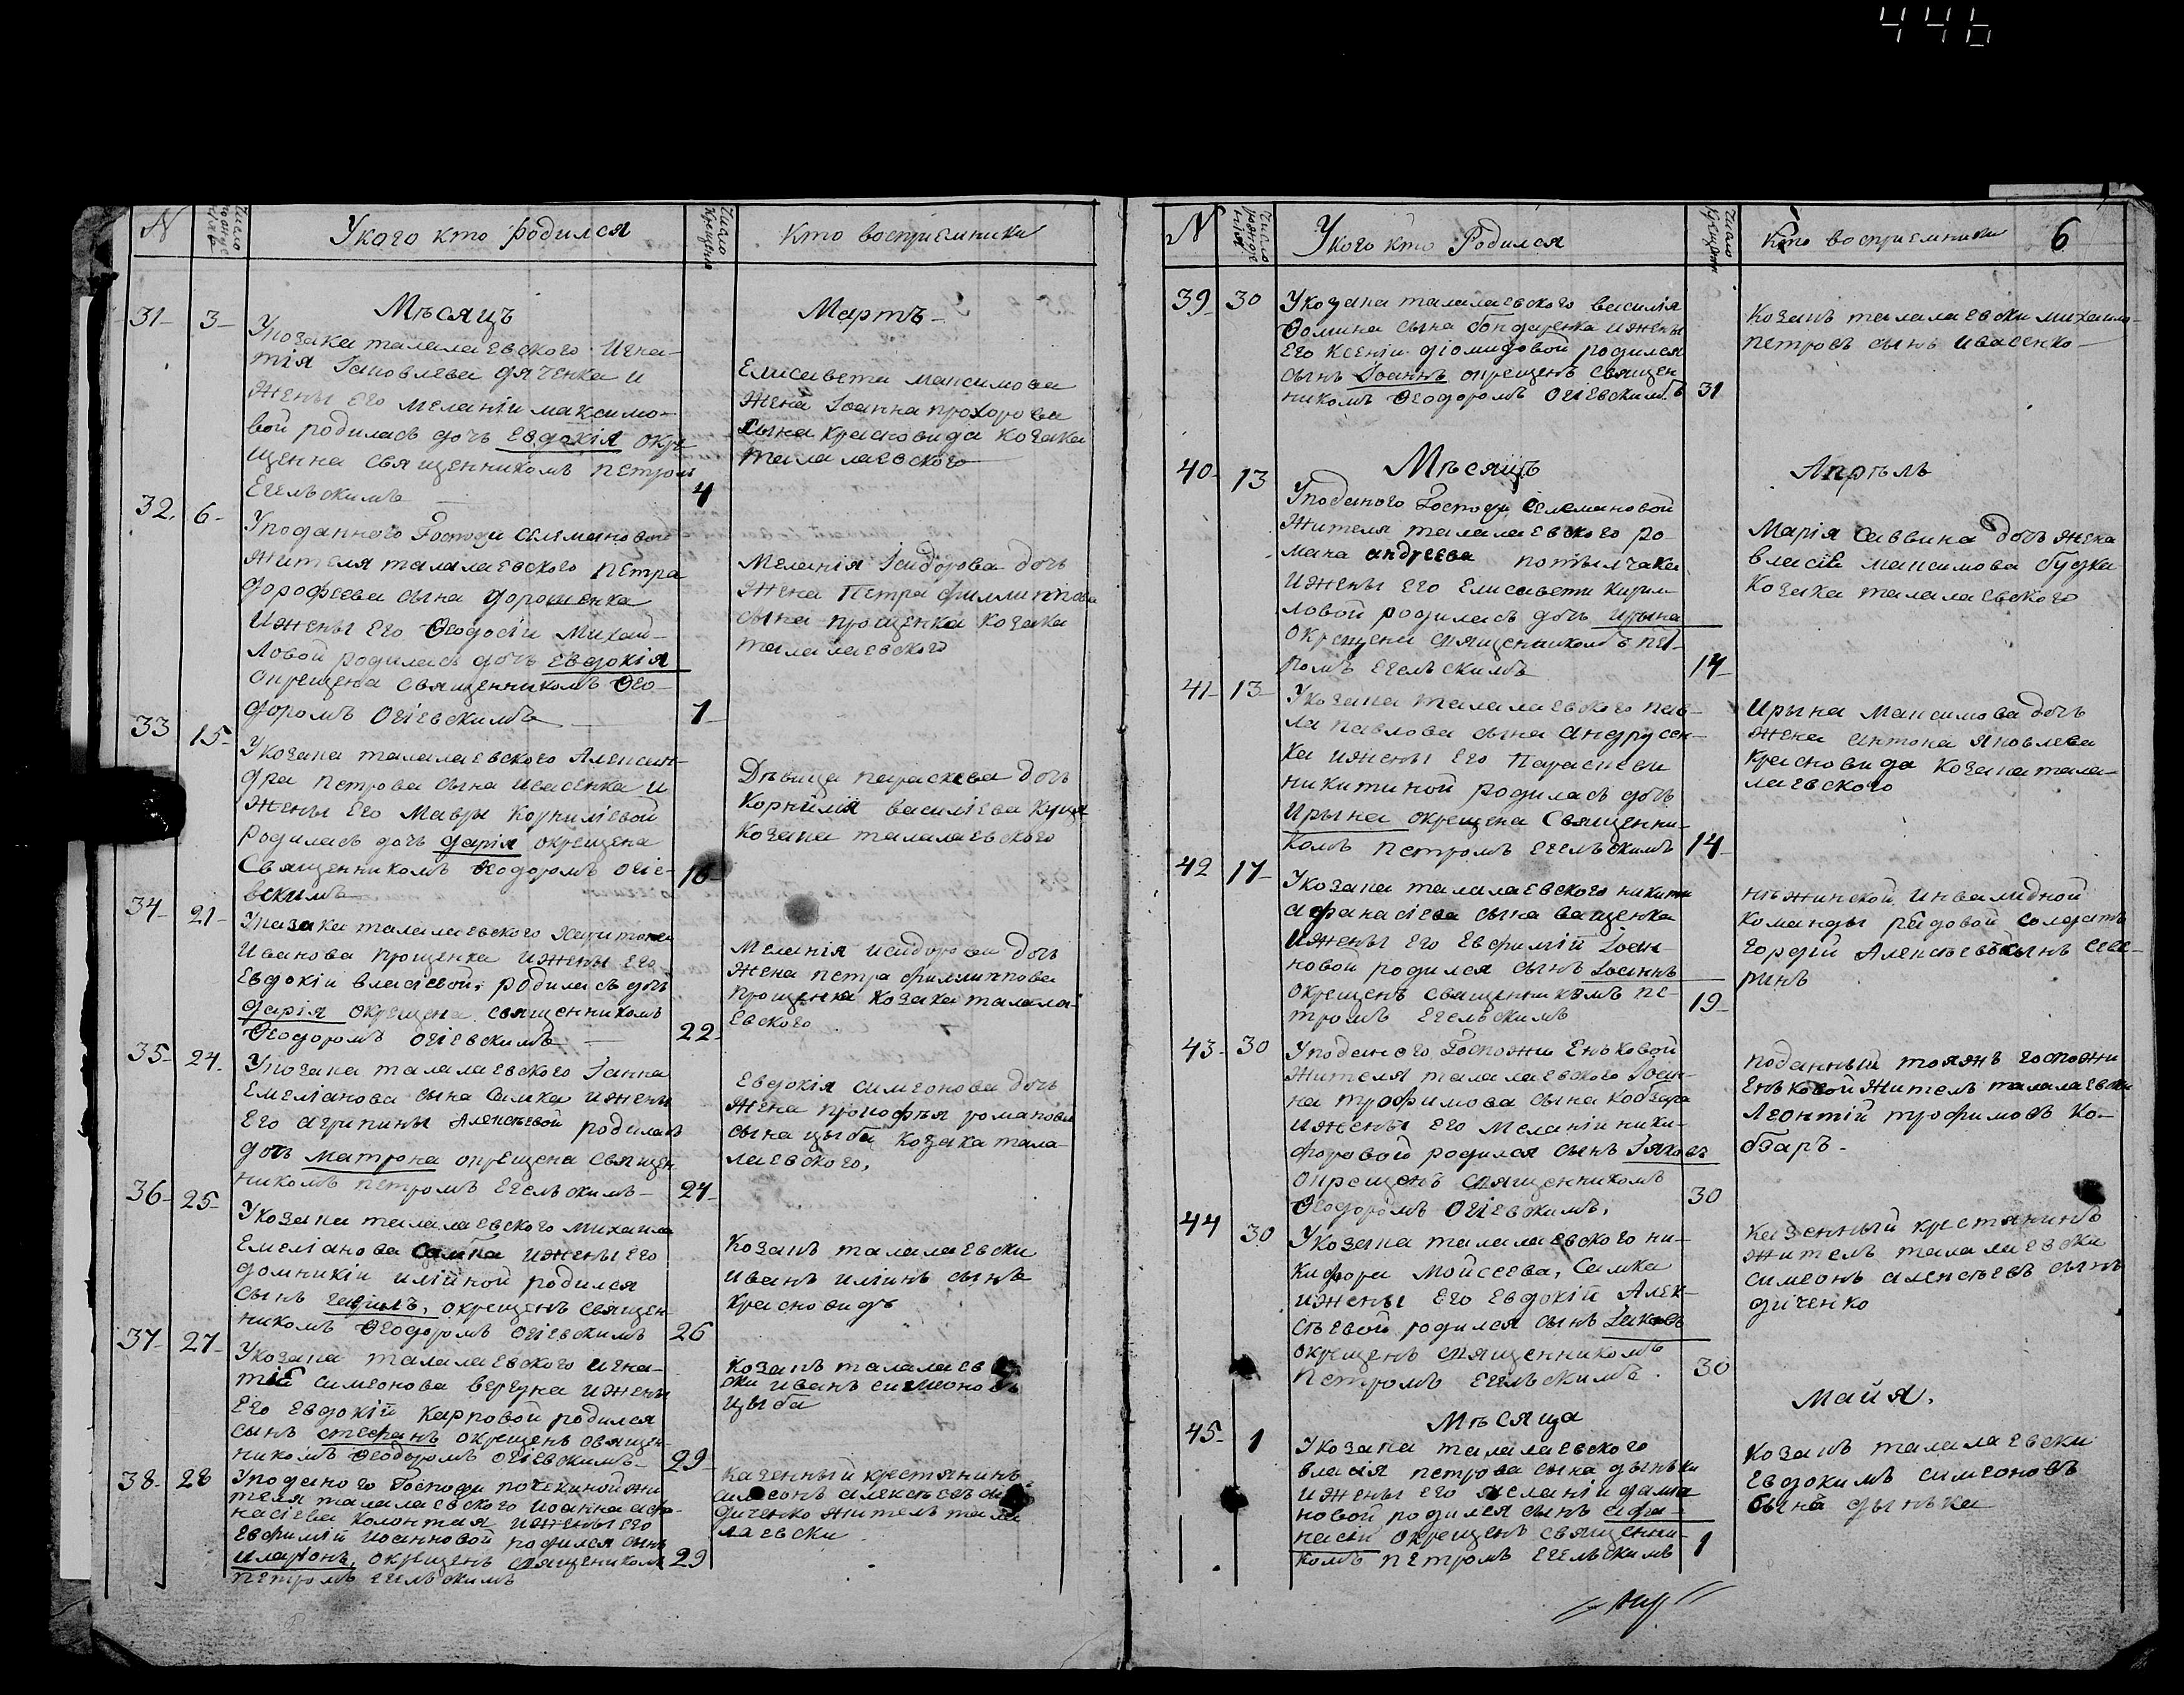 446
N
Число рожденія
У кого кто родился
Число крещенія
Кто восприемники
Мѣсяцъ
Мартъ
31
3
У козака талалаевского Игна-
тія Іаковлева дяченка и
жены его Меланіи Максимо-
вой родилась дочь Евдокія окре
щенна священникомъ Петромъ
Егельскимъ
4
Елисавета Максимова
жена Іоанна Прохорова
сына Красновида козака
талалаевского
32
6
У поданного Госпожи Селемановой
жителя талалаевского Петра
Дорофеева сына Дорошенка
и жены его Ѳеодосіи Михай-
ловой родилась дочь Евдокія
окрещена священникомъ Ѳео-
доромъ Огіевскимъ
7
Меланія Ісидорова дочь
жена Петра Филлиппова
сына Прощенка козака
талалаевского
33
15
У козака талалаевского Алексан-
дра Петрова сына Ивасенка и
жены его Мавры Корниліевой
родилась дочь Дарія окрещена
священникомъ Ѳеодоромъ Огіе-
вскимъ
16
Дѣвица Параскева дочь
Корнилія Василіева Куця
козака талалаевского
34
21
У козака талалаевского Харитона
Иванова Прощенка и жены его
Евдокіи Власіевой родилась дочь
Дарія окрещена священникомъ
Ѳеодоромъ Огіевскимъ
22
Меланія Исидорова дочь
жена Петра Филлиппова
Прощенка козака талала-
евского
35
24
У козака талалаевского Іанна
Емеліанова сына Самка и жены
его Агрипины Алексѣевой родилась
дочь Матрона окрещена священ
никомъ Петромъ Егельскимъ
24
Евдокія Симеонова дочь
жена Прокофья Романова
сына Цыба козака тала-
лаевского,
36
25
У козака талалаевского Михаила
Емеліанова Самка и жены его
Домникіи Иліиной родился
сынъ окрещенъ священ
никомъ Ѳеодоромъ Огіевскимъ
26
Козакъ талалаевски
Иванъ Иліинъ сынъ
Красновидъ
37
27
У козака талалаевского Игна-
тія Симеонова и жены
его Евдокіи Карповой родился
сынъ Стефанъ окрещенъ священ-
никомъ Ѳеодоромъ Огіевскимъ
29
Козакъ талалаев
ски Иванъ Симеоновъ
Цыба
38
28
У поданого Госпожи жи
теля талалаевского Иоанна Афа-
насіева Колонтая и жены его
Евфиміи Иоанновой родился сынъ
Иларіонъ, окрещенъ священикомъ
Петромъ Егельскимъ
29
Казенный крестянинъ
Симеонъ Алексѣевъ
Диченко житель тала
лаевски
N
Число рожденія
У кого кто Родился
Число крещенія
Кто восприемники
6
39
30
У козака талалаевского Василія
Ѳомина сына Бондаренка и жены
его Ксеніи Діомидовой родился
сынъ Іоаннъ окрещенъ священ
никомъ Ѳеодоромъ Огіевскимъ
31
Козакъ талалаевски Михаило
Петровъ сынъ Ивасенко
Мѣсяцъ
Апрѣль
40
13
У поданого Госпожи Селемановой
жителя талалаевского Ро-
мана Андреева Потылчака
и жены его Елисавети Кирил-
ловой родилась дочь Ирына
окрещена священникомъ Пет-
ромъ Егельскимъ
14
Марія Саввина дочь жена
Власія Максимова Будка
козака талалаевского
41
13
У козака талалаевского Пав-
ла Павлова сына Андрусен-
ка и жены его Параскеви
Никитиной родилась дочь
Ирына окрещена священни-
комъ Петромъ Егельскимъ
14
Ирына Максимова дочь
жена Антона Яковлева
Красновида козака тала-
лаевского
42
17
У козака талалаевского Никити
Афанасіева сына Ващенка
и жены его Евфиміи Іоан-
новой родился сынъ Іоаннъ
окрещенъ священникомъ Пе-
тромъ Егельскимъ
19
Нѣжинской инвалидной
команды рядовой солдатъ
Гордій Алексѣевъ сынъ Севе-
ринъ
43
30
У поданого Госпожи Еньковой
жителя талалаевского Іоан-
на Трофимова сына Кобзара
и жены его Меланіи Ники-
форовой родился сынъ Іяковъ
окрещенъ священникомъ
Ѳеодоромъ Огіевскимъ,
30
Поданный тояжъ госпожи
Еньковой житель талалаевски
Леонтій Трофимовъ Ко-
бзаръ
44
30
У козака талалаевского Ни-
кифора Мойсеева, Самка
и жены его Евдокіи Алек-
сѣевой родился сынъ Іаковъ
окрещенъ священникомъ
Петромъ Егельскимъ.
30
Казенный крестянинъ
житель талалаевски
Симеонъ Алексѣевъ сынъ
Диченко
Мѣсяца
Майя.
45
1
У козака талалаевского
Власія Петрова сына Дынъки
и жены его Меланіи Даміа
новой родился сынъ Афа-
насіи окрещенъ священни-
комъ Петромъ Егельскимъ
1
Козакъ талалаевски
Евдокимъ Симеоновъ
сына Дынька